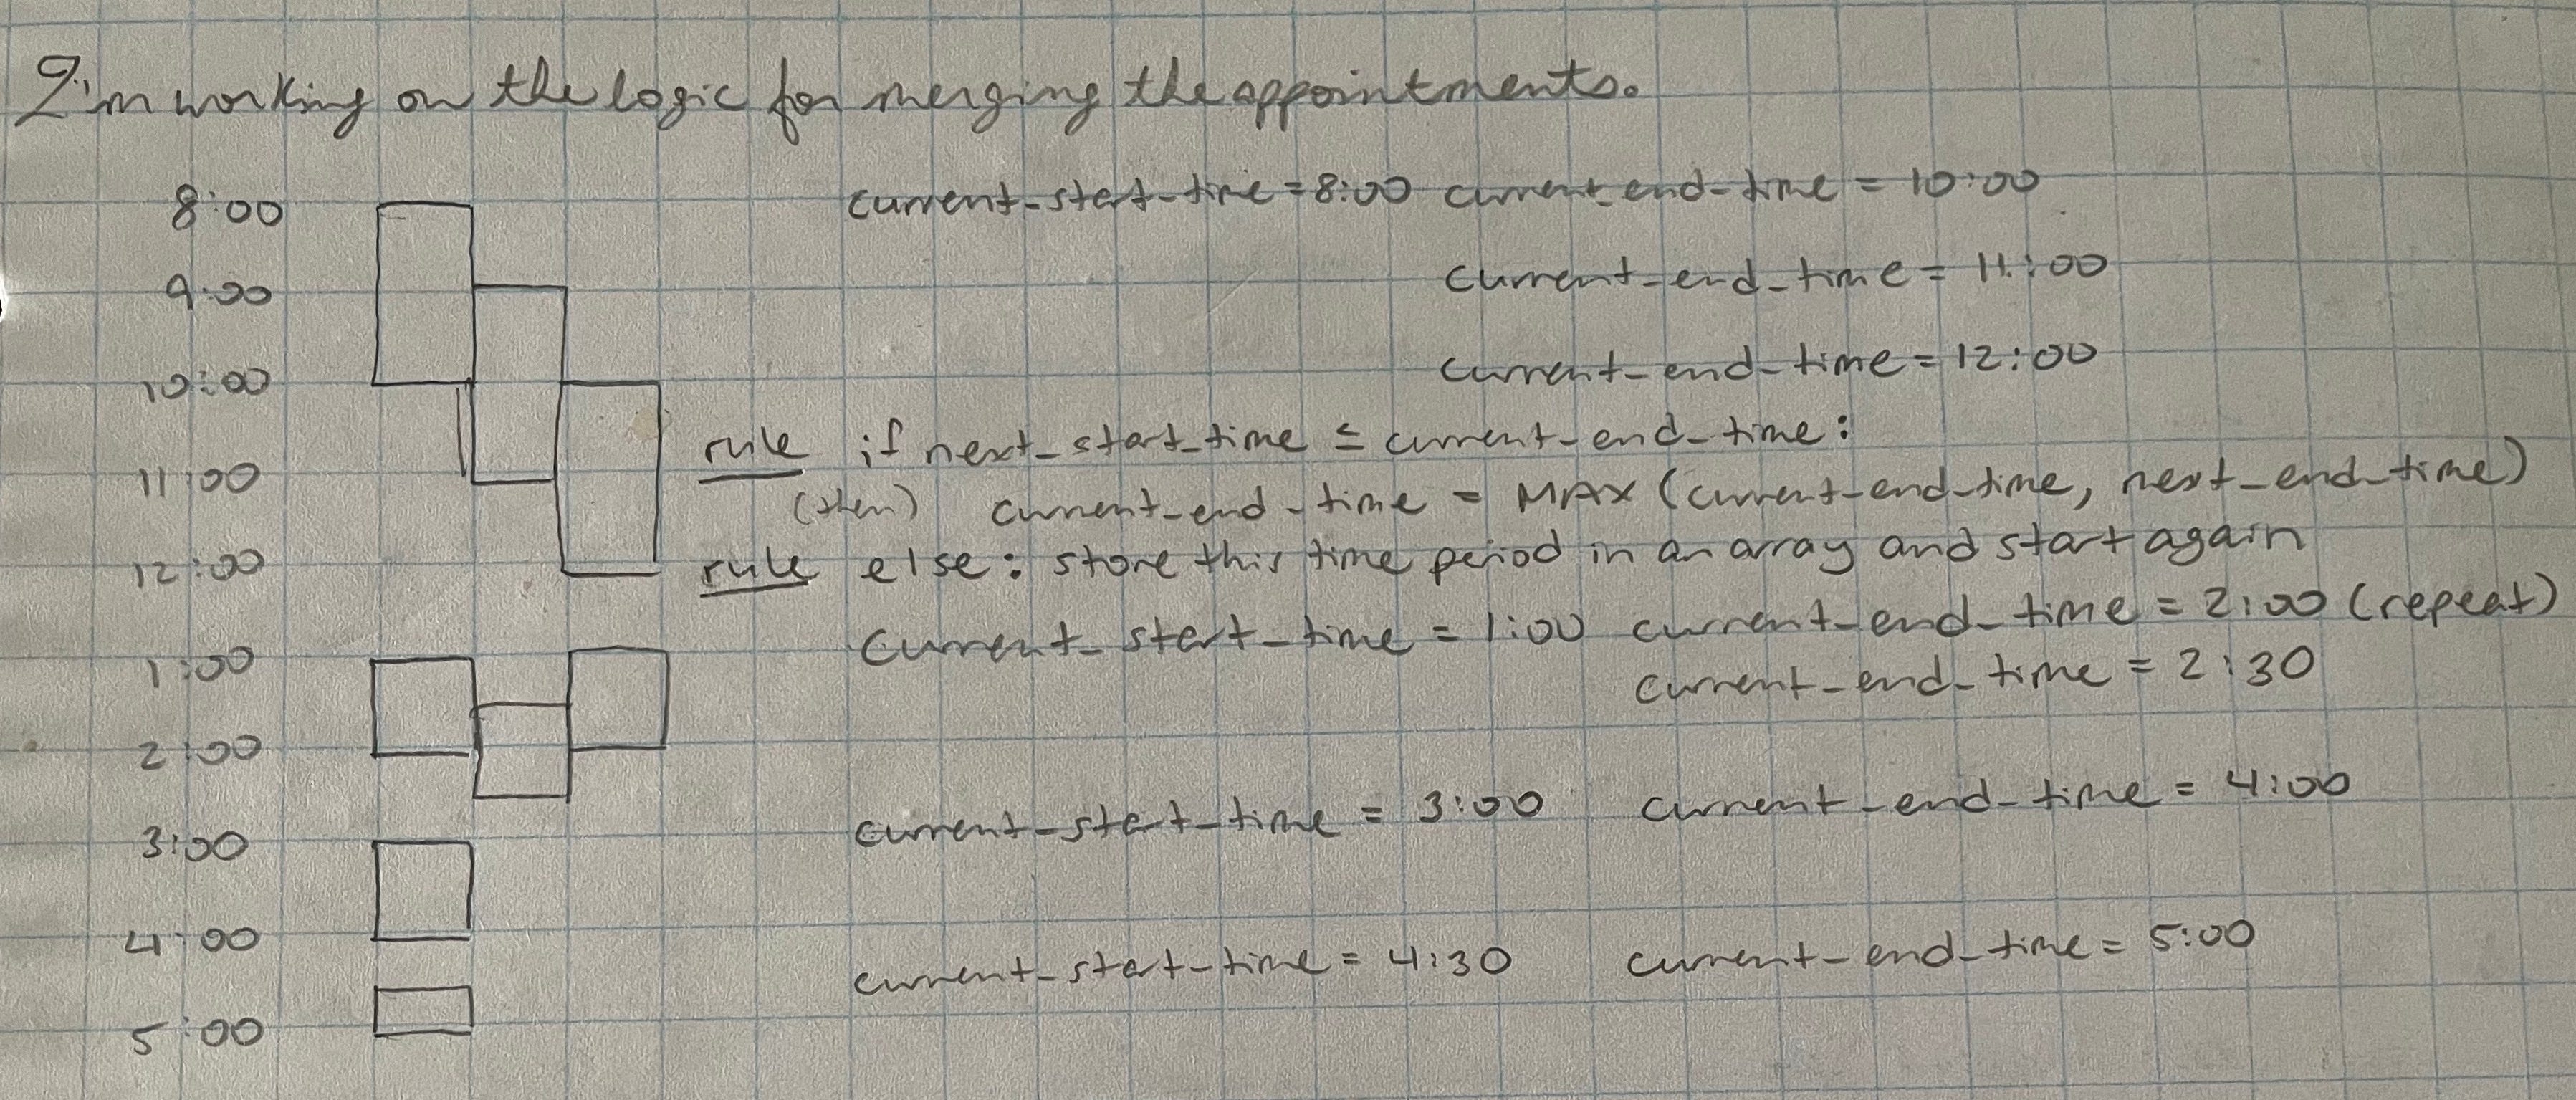 I'm working on the logic for merging the appointments.
8:00 current-start-time = 8:00 current-end-time = 10:00
9:00 current-end-time = 11:00
10:00 current-end-time = 12:00
rule if next_start_time ≤ current-end-time:
11:00 (then) current-end-time = MAX (current-end-time, next_end_time)
12:00 rule else: store this time period in an array and start again
1:00 current_start_time = 1:00 current-end-time = 2:00 (repeat)
current-end-time = 2:30
2:00
3:00 current-start-time = 3:00 current-end-time = 4:00
4:00 current-start-time = 4:30 current-end-time = 5:00
5:00